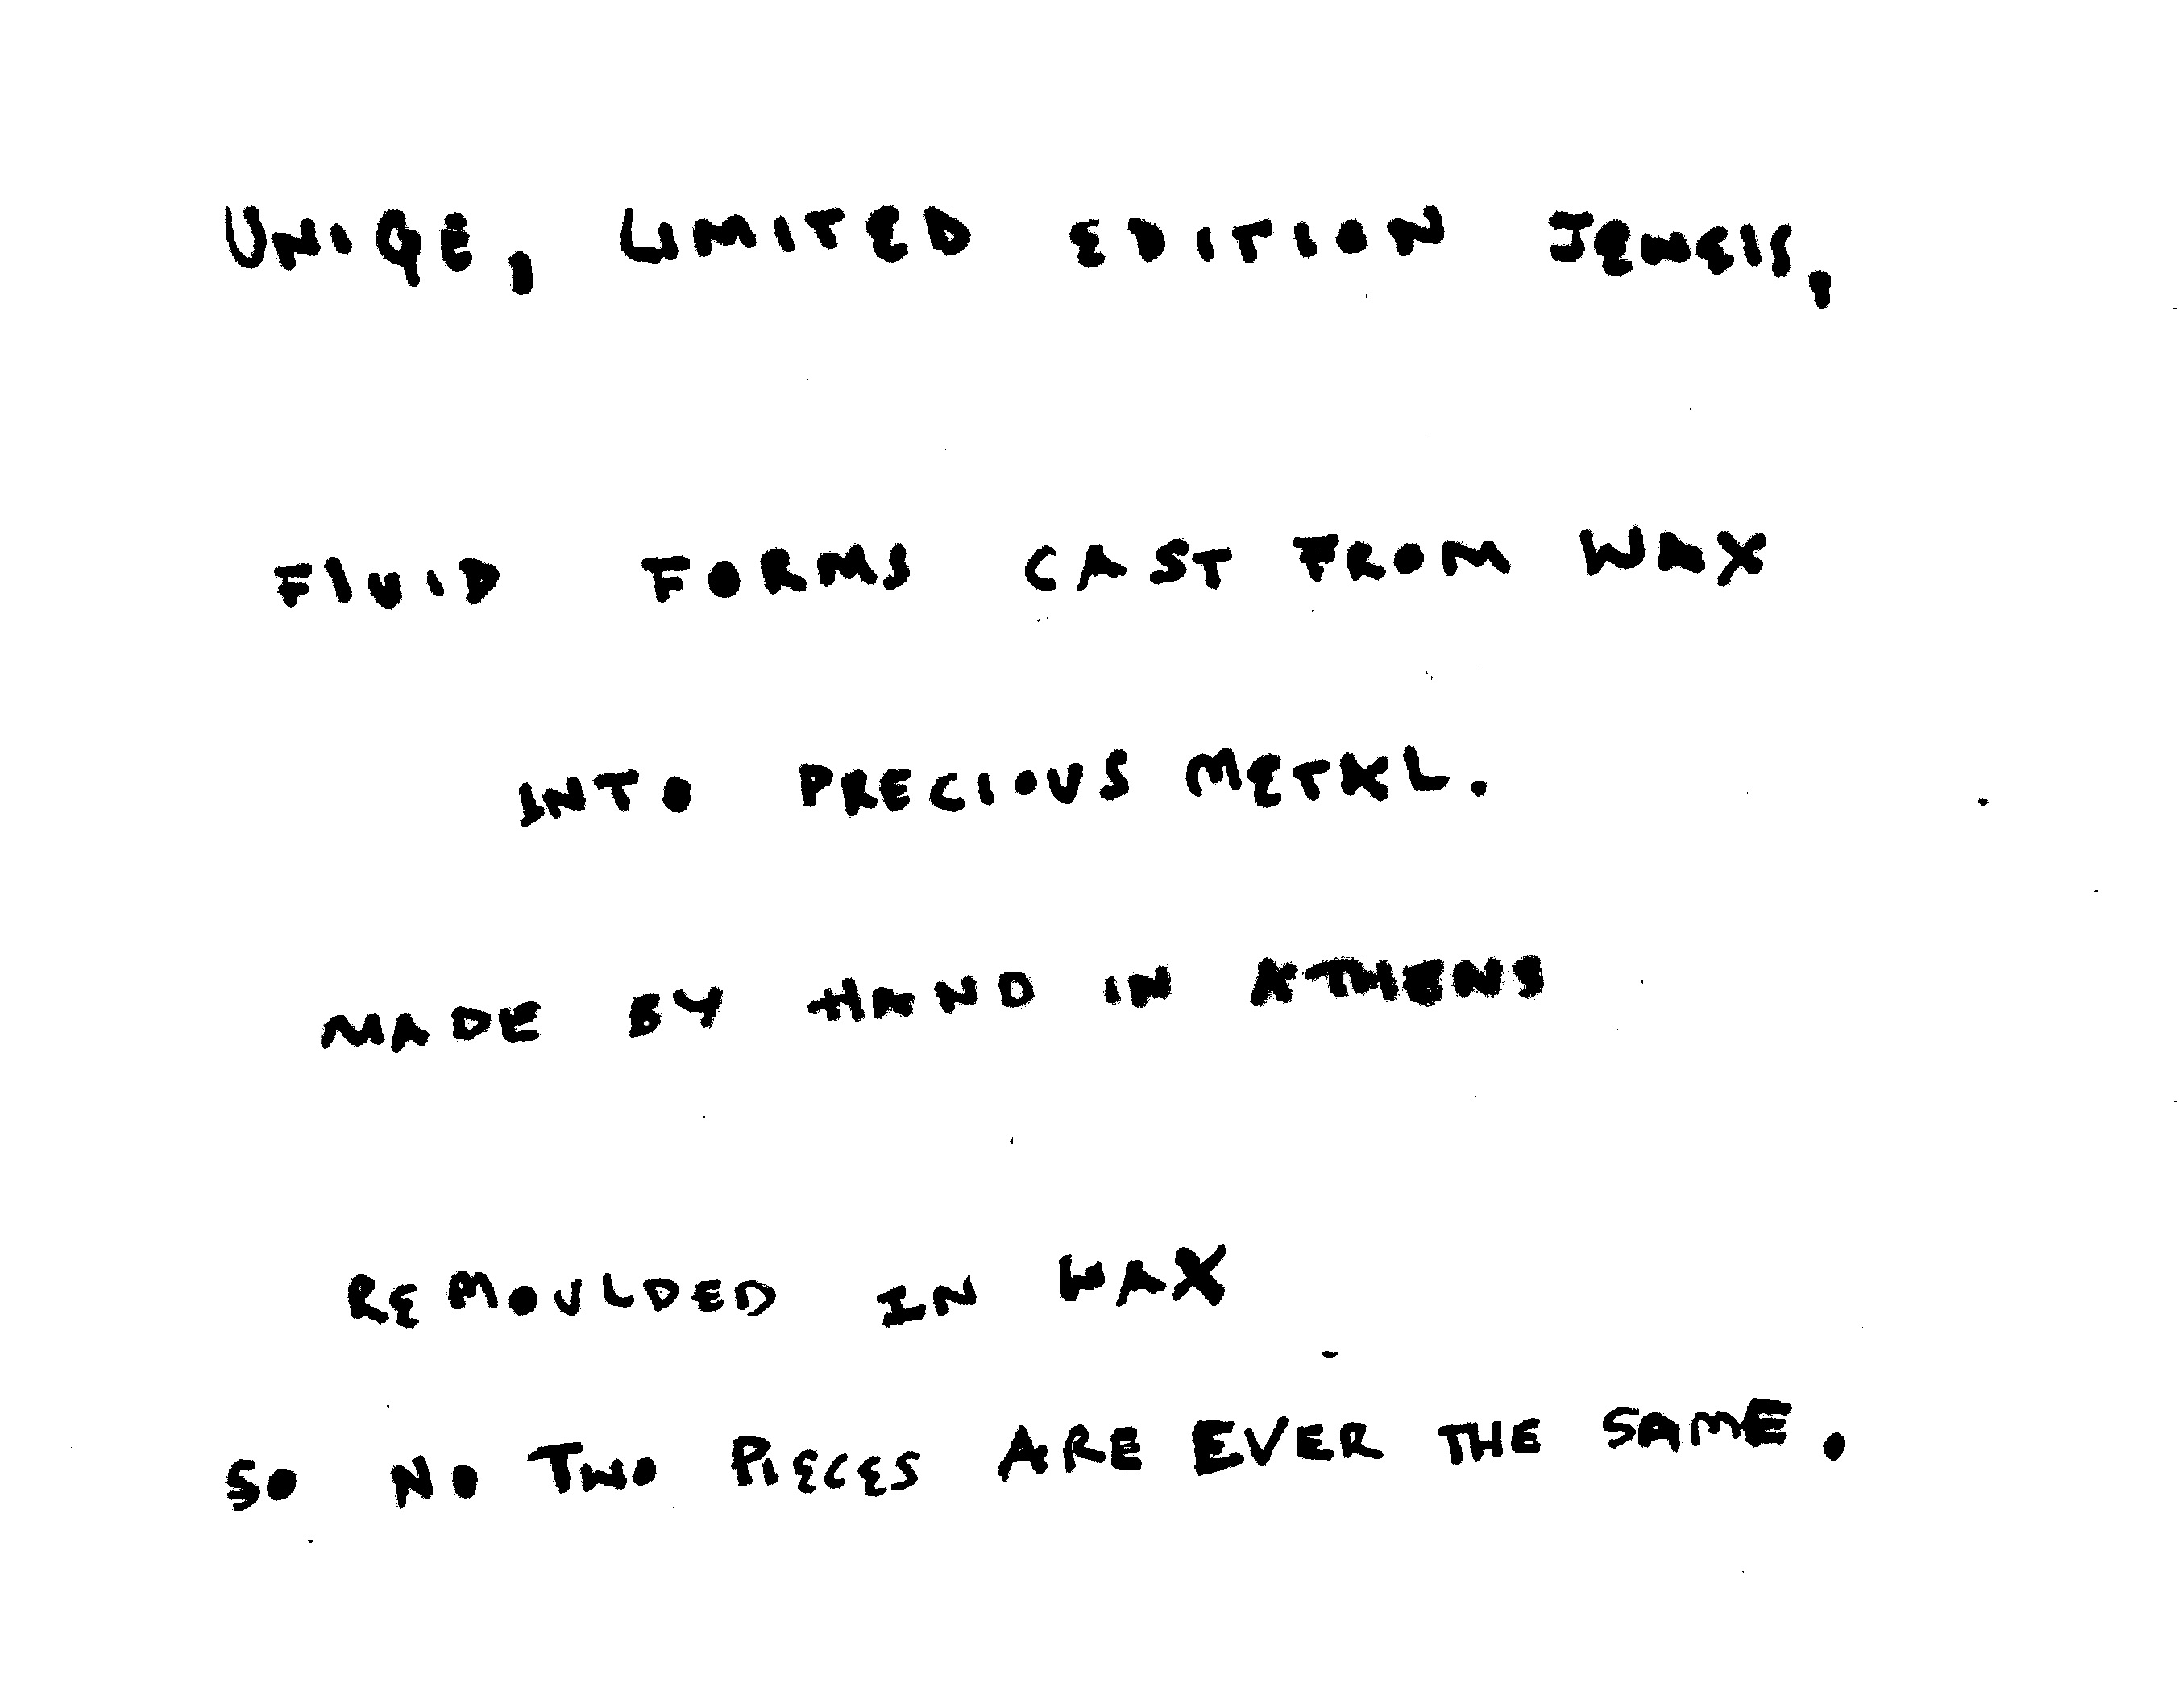 UNIQE, LIMITED EDITION JEWElS,
FlUID FORMS CAST FROM WAX
INTO PRECIOUS METAL.
MADE BY HAND IN ATHENS
REMOULDED IN WAX
SO NO TWO PIECES ARE EVER THE SAME.